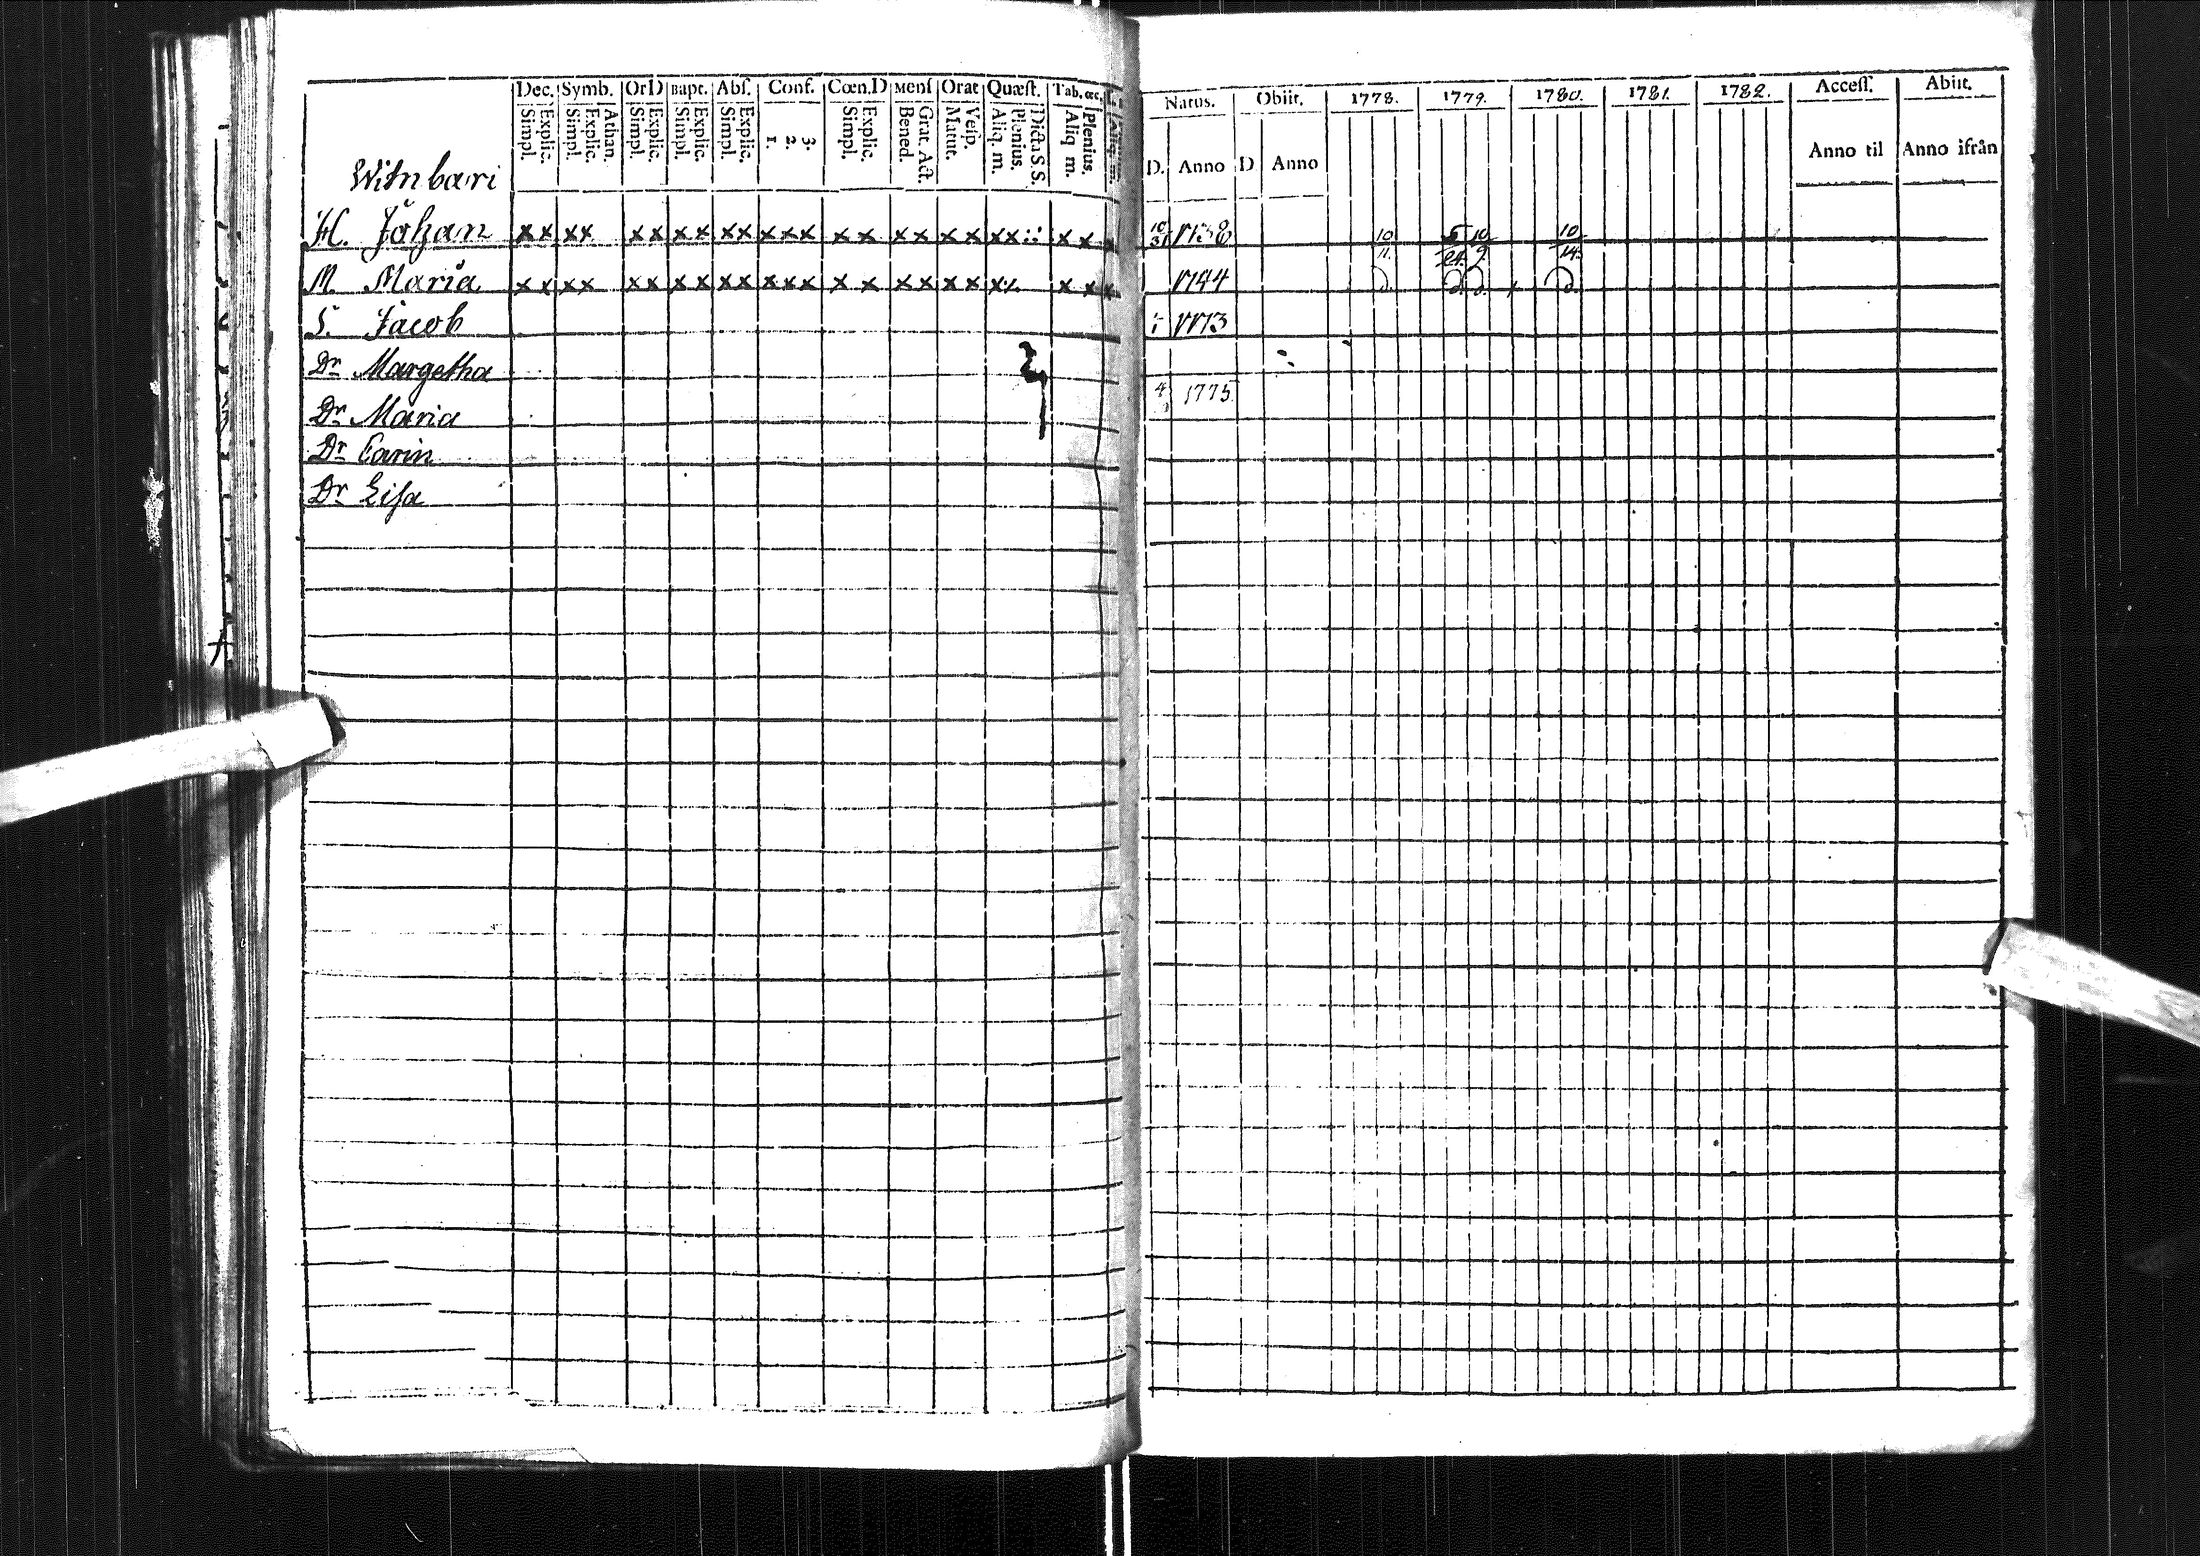 Dec. Symb. OrD Bapt. Abſ. Conf. Cœn.D Menſ Orat Quæſt. Tab. œc. Natus. Obiit. 1778. 1779. 1780. 1781. 1782. Acceſſ. Abiit.
Explic. Simpl. Athan. Explic. Simpl. Explic. Simpl. Explic. Simpl. Explic. Simpl. 3. 2. 1. Explic. Simpl. Grat. Act. Bened. Veſp. Matut. Dicta S.S. Plenius. Aliq. m. Plenius. Aliq m. D. Anno D Anno Anno til Anno ifrån
Witnbari
H. Johan x x x x x x x x x x x x x x x x x x x x x x x x 10/31 10/11. 5/24. 10/9. 10/14.
M. Maria x x x x x x x x x x x x x x x x x x x x x x 1744
S. Jacob 1773
Dr Margetha
Dr Maria 1775
Dr Carin
Dr Lisa